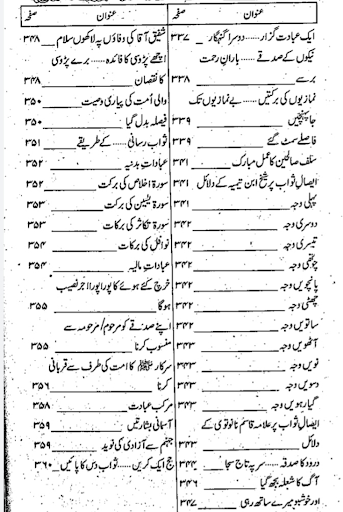 عنوان صفحہ
ایک عبادت گزار……دوسرا گنہگار ۳۳۷
نیکوں کے صدقے……بارانِ رحمت
برسے ۳۳۸
نمازیوں کی برکتیں……بے نمازیوں تک
جا پہنچیں ۳۳۹
فاصلے سمٹ گئے ۳۳۹
سلف صالحین کا عمل مبارک ۳۴۱
ایصالِ ثواب پر شیخ ابن تیمیہ کے دلائل ۳۴۱
پہلی وجہ ۳۴۱
دوسری وجہ ۳۴۲
تیسری وجہ ۳۴۲
چوتھی وجہ ۳۴۲
پانچویں وجہ ۳۴۲
چھٹی وجہ ۳۴۲
ساتویں وجہ ۳۴۲
آٹھویں وجہ ۳۴۳
نویں وجہ ۳۴۳
دسویں وجہ ۳۴۳
گیارہویں وجہ ۳۴۳
ایصالِ ثواب پر علامہ قاسم نانوتوی کے
دلائل ۳۴۳
درود کا صدقہ……سر پہ تاج سجا ۳۴۴
آگ کا شعلہ بجھ گیا ۳۴۶
اور خوشبو میرے ساتھ رہی ۳۴۷
عنوان صفحہ
شفیق آقا کی وفاؤں پہ لاکھوں سلام ۳۴۸
اچھے پڑوسی کا فائدہ……برے پڑوسی
کا نقصان ۳۴۸
والی اُمت کی پیاری وصیت ۳۵۰
فیصلہ بدل گیا ۳۵۰
ثواب رسانی……کے طریقے ۳۵۱
عباداتِ بدنیہ ۳۵۲
سورۃ اخلاص کی برکت ۳۵۲
سورۃ یٰسین کی برکت ۳۵۳
سورۃ تکاثر کی برکات ۳۵۳
نوافل کی برکات ۳۵۴
عباداتِ مالیہ ۳۵۴
خرچ کئے ہوئے کا پورا پورا اجر نصیب
ہوگا ۳۵۵
اپنے صدقے کو مرحوم/مرحومہ سے
منسوب کرنا ۳۵۵
سرکار ﷺ کا امت کی طرف سے قربانی
کرنا ۳۵۶
مرکب عبادت ۳۵۸
آسمانی بشارتیں ۳۵۹
جہنم سے آزادی کی نوید ۳۵۹
حج ایک کریں……ثواب دس کا پائیں ۳۶۰